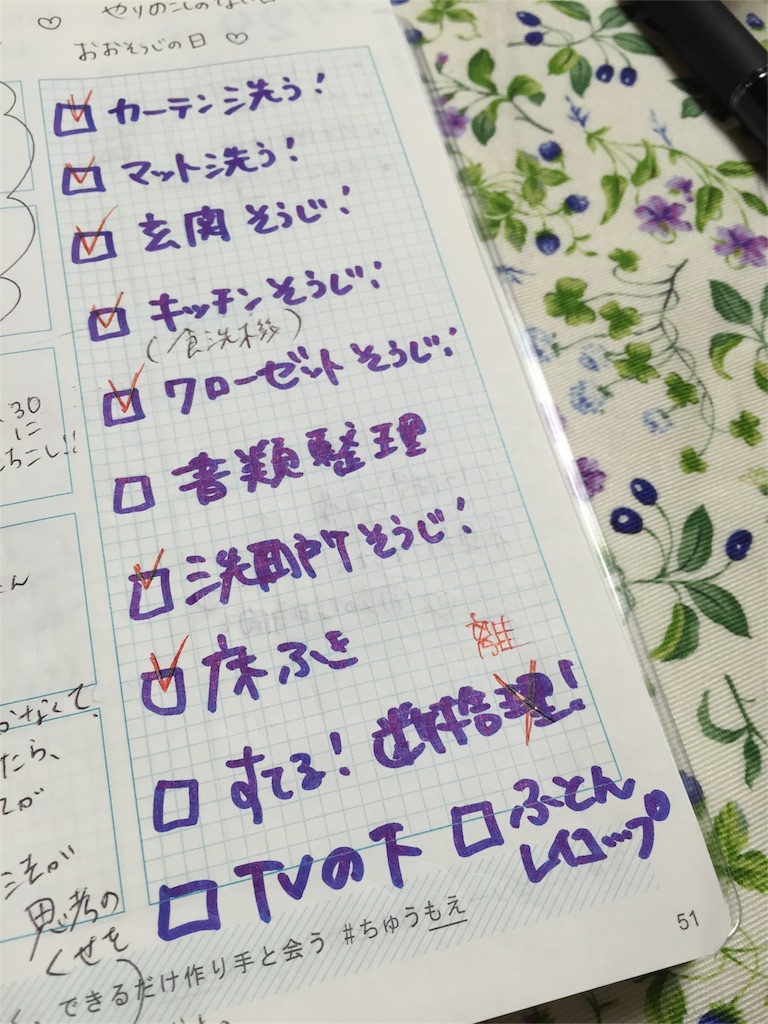 やりのこしのない
おおそうじの日
カーテン洗う!
マット洗う!
玄関そうじ!
キッチンそうじ!
(食洗機)
クローゼットそうじ!
書類整理
洗面所そうじ!
床ふき
離
すてる!断捨理!
TVの下
ふとん
レイコップ
30
に
たら、
思考の
くせを
できるだけ作り手と会う #ちゅうもえ
51